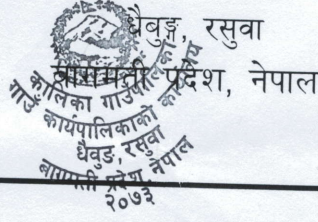 धैबुङ्ग, रसुवा
बागमती प्रदेश, नेपाल
कालिका गाउँपालिका
गाउँ कार्यपालिकाको कार्यालय
धैवुङ, रसुवा
बागमती प्रदेश, नेपाल
२०७३